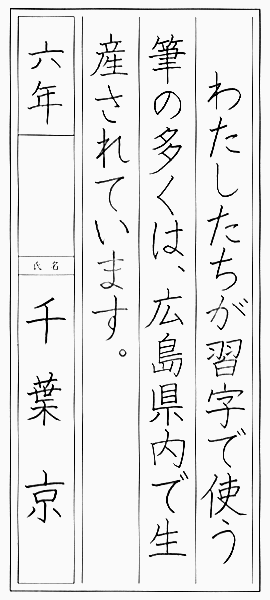 わたしたちが習字で使う
筆の多くは、広島県内で生
産されています。
六年
氏名
千葉京